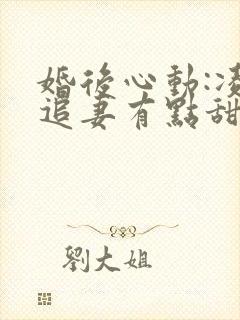 婚後心動:凌
追妻有點甜
劉大姐